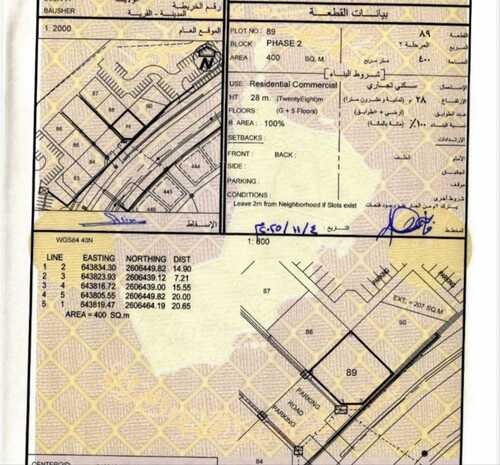 رقم الخريطة
BAUSHER
المدينة - القرية
1: 2000
الموقع العام
بيانات القطعة
PLOT NO : 89
٨٩
القطعة
BLOCK : PHASE 2
المرحلة ٢
المربع
AREA : 400 SQ. M
٤٠٠
متر مربع
المساحة
شروط البناء
USE : Residential Commercial
سكني تجاري
الإستعمال
HT : 28 m. (TwentyEight)m
٢٨ م
الإرتفاع
FLOORS : (G + 5 Floors)
عدد الطوابق
B AREA : 100%
١٠٠٪
نسبة البناء
SETBACKS :
الإرتدادات
FRONT : BACK :
الخلف
الأمام
SIDE :
الجانبان
PARKING :
موقف
CONDITIONS :
شروط أخرى
Leave 2m from Neighborhood if Slots exist
المخطط
التاريخ
الإسقاط
WGS84 43N
1: 800
LINE EASTING NORTHING DIST
1 2 643834.30 2606449.82 14.90
2 3 643823.93 2606439.12 7.21
3 4 643816.72 2606439.00 15.55
4 5 643805.55 2606449.82 20.00
5 1 643819.47 2606464.19 20.65
AREA = 400 SQ.m
PARKING
PARKING
EXT. = 207 SQ.M
87
88
90
89
PARKING
ROAD
PARKING
84
CENTEROID